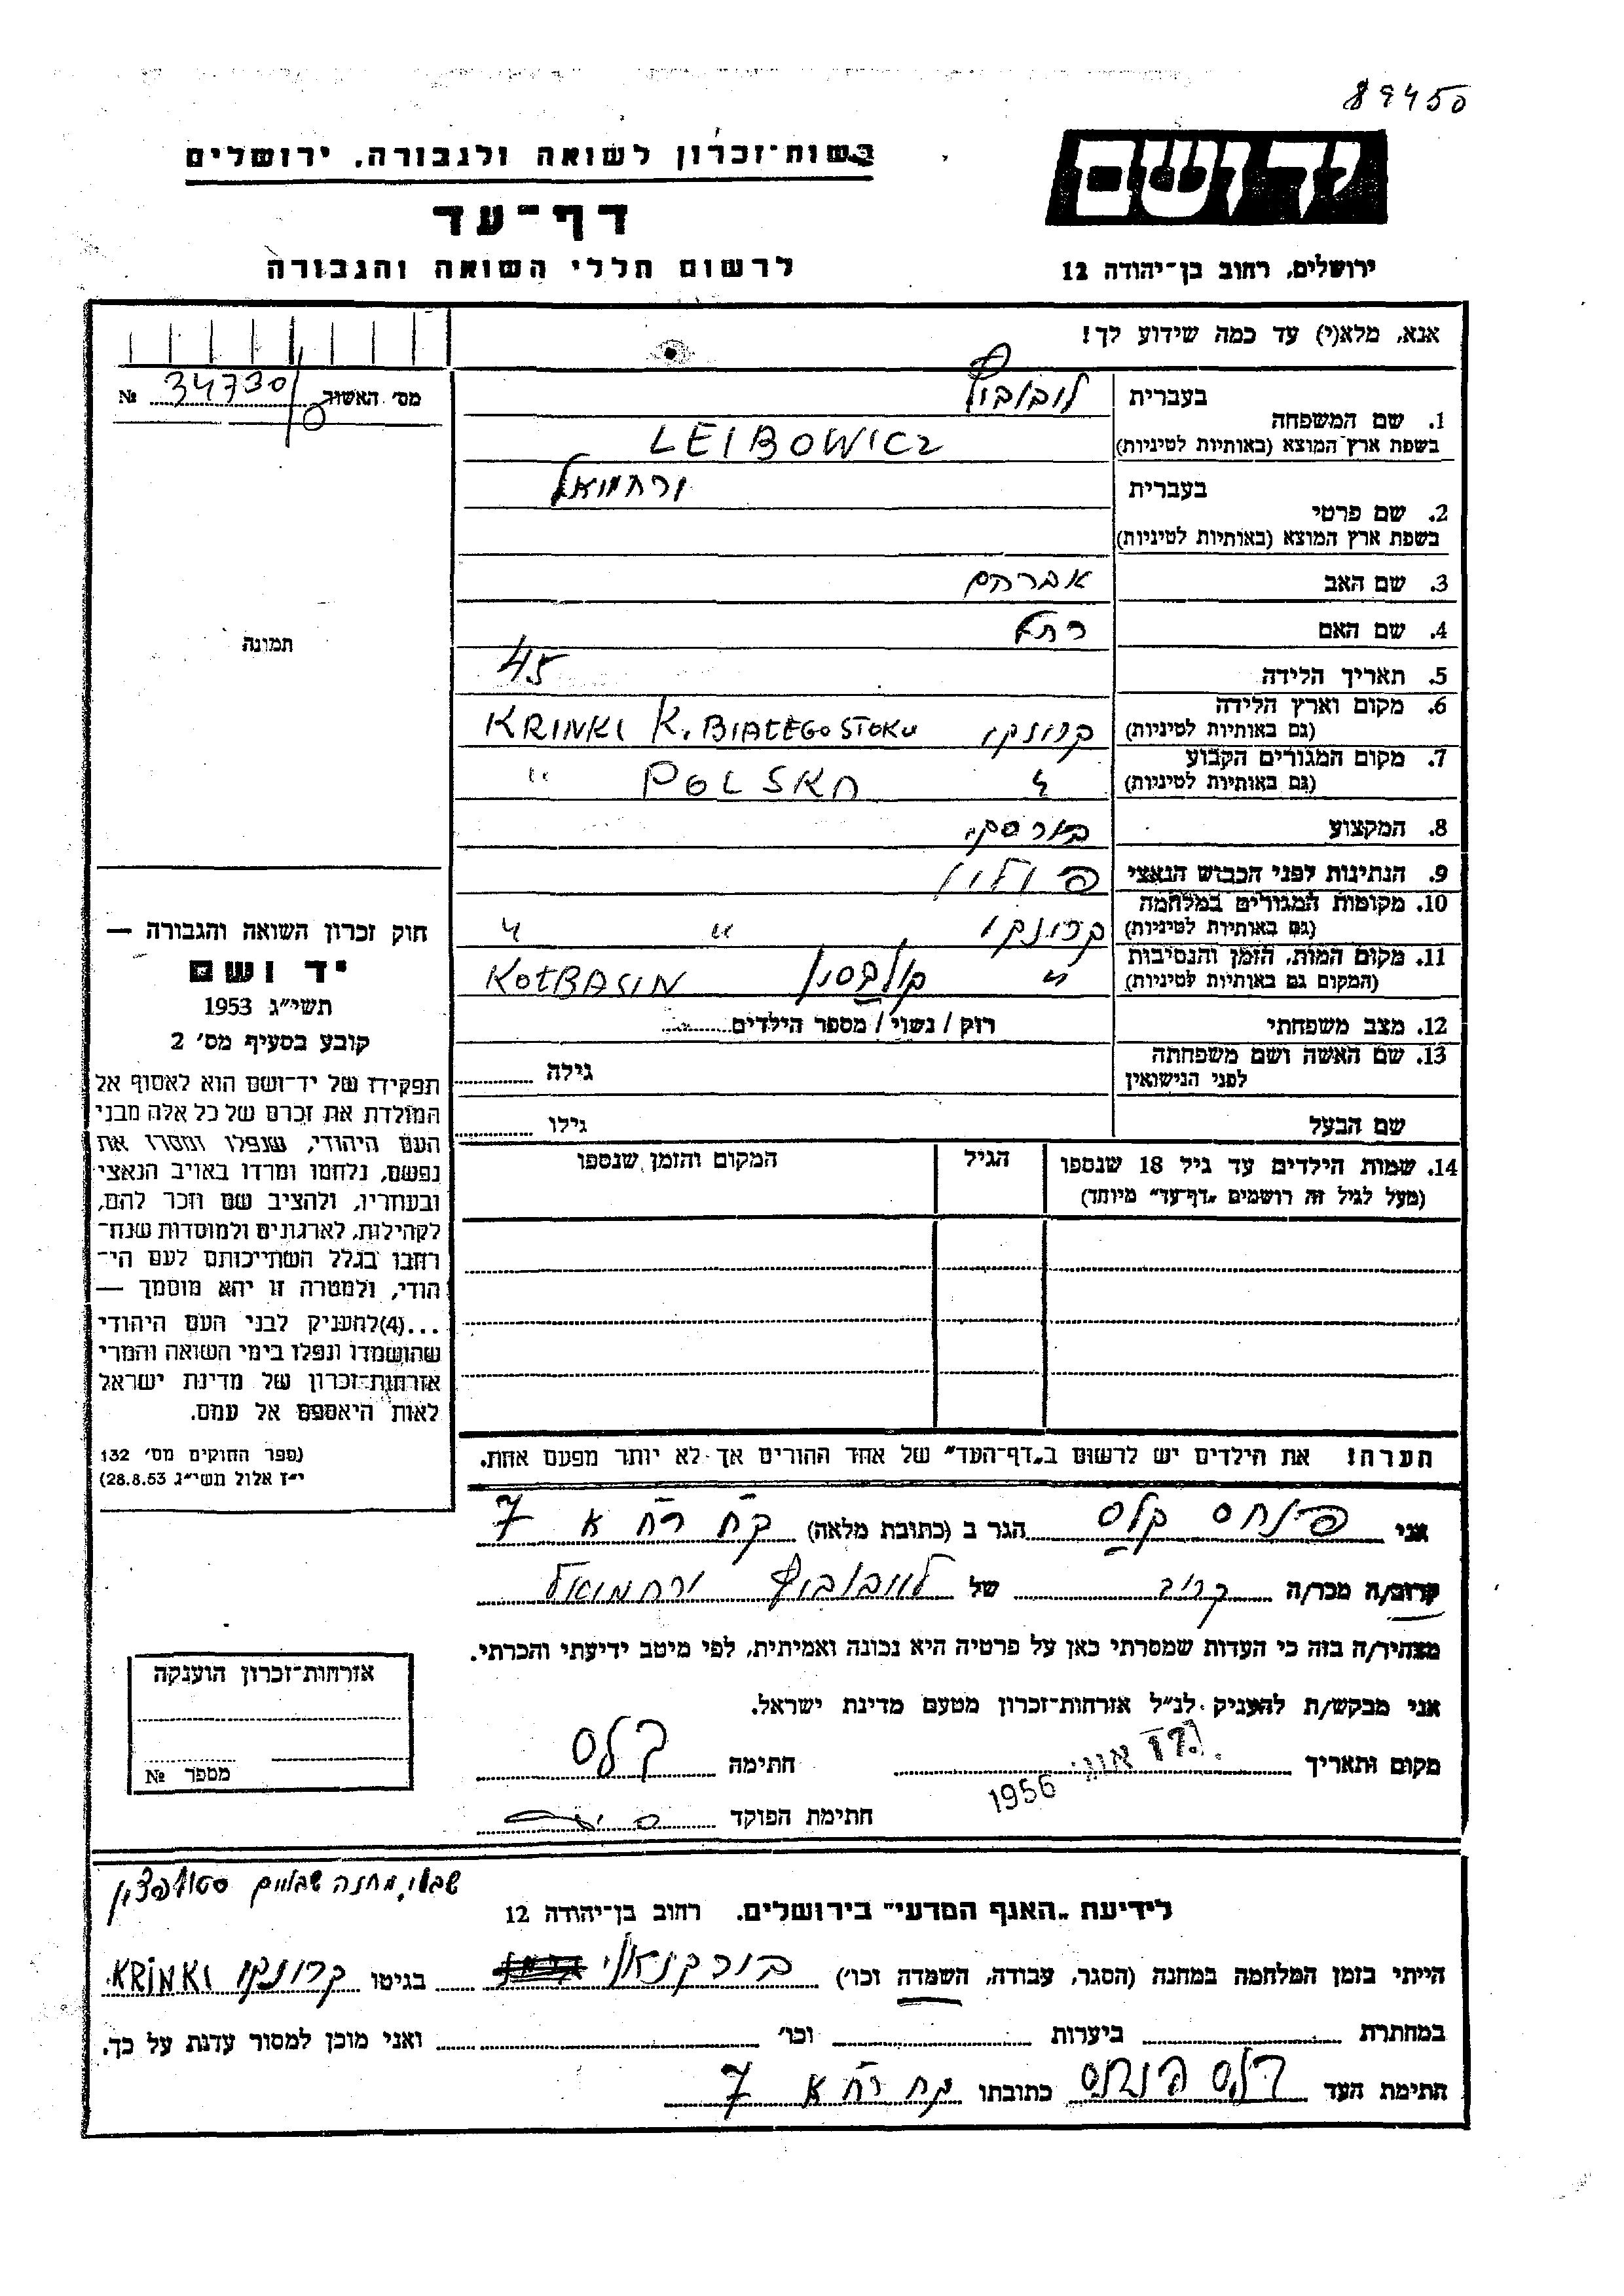 89450
יד ושם
רשות־זכרון לשואה ולגבורה, ירושלים
דף־עד
ירושלים, רחוב בן־יהודה 12
לרשום חללי השואה והגבורה
אנא, מלא(י) עד כמה שידוע לך!
מס׳ האשור 34730 №
1. שם המשפחה
בעברית
בשפת ארץ־המוצא (באותיות לטיניות) LEIBOWICZ
2. שם פרטי
בעברית ירחמיאל
בשפת ארץ המוצא (באותיות לטיניות)
3. שם האב אברהם
4. שם האם
5. תאריך הלידה 45
6. מקום וארץ הלידה
(גם באותיות לטיניות) קרינקי KRINKI K. BIAŁEGOSTOKU
7. מקום המגורים הקבוע
(גם באותיות לטיניות) " POLSKA "
8. המקצוע בורסקי
9. הנתינות לפני הכבוש הנאצי פולין
10. מקומות המגורים במלחמה
(גם באותיות לטיניות) קרינקי " "
11. מקום המות, הזמן והנסיבות
(המקום גם באותיות לטיניות) " קולבסין KOŁBASIN
12. מצב משפחתי רוק / נשוי / מספר הילדים
13. שם האשה ושם משפחתה
לפני הנישואין גילה
שם הבעל גילו
14. שמות הילדים עד גיל 18 שנספו
(מעל לגיל זה רושמים „דף־עד״ מיוחד)
הגיל
המקום והזמן שנספו
הערה! את הילדים יש לרשום ב„דף־העד״ של אחד ההורים אך לא יותר מפעם אחת.
תמונה
חוק זכרון השואה והגבורה —
יד ושם
תשי״ג 1953
קובע בסעיף מס׳ 2
תפקידו של יד־ושם הוא לאסוף אל
המולדת את זכרם של כל אלה מבני
העם היהודי, שנפלו ומסרו את
נפשם, נלחמו ומרדו באויב הנאצי
ובעוזריו, ולהציב שם וזכר להם,
לקהילות, לארגונים ולמוסדות שנח־
רחבו בגלל השתייכותם לעם הי־
הודי, ולמטרה זו יהא מוסמך —
...(4)להעניק לבני העם היהודי
שהושמדו ונפלו בימי השואה והמרי
אזרחות־זכרון של מדינת ישראל
לאות היאספם אל עמם.
(ספר החוקים מס׳ 132
י״ז אלול תשי״ג 28.8.53)
אני פינחס קלס הגר ב (כתובת מלאה) קח רח א 7
קרוב/ה מכר/ה קרוב של לייבוביץ ירחמיאל
מצהיר/ה בזה כי העדות שמסרתי כאן על פרטיה היא נכונה ואמיתית, לפי מיטב ידיעתי והכרתי.
אני מבקש/ת להעניק לנ״ל אזרחות־זכרון מטעם מדינת ישראל.
מקום ותאריך 1956 חתימה קלס
חתימת הפוקד
אזרחות־זכרון הוענקה
מספר №
לידיעת „האגף המדעי״ בירושלים. רחוב בן־יהודה 12
הייתי בזמן המלחמה במחנה (הסגר, עבודה, השמדה וכו׳) בירקנאו בגיטו קרינקי KRINKI
במחתרת ביערות וכו׳ ואני מוכן למסור עדות על כך.
חתימת העד קלס פנחס כתובתו קח רח א 7